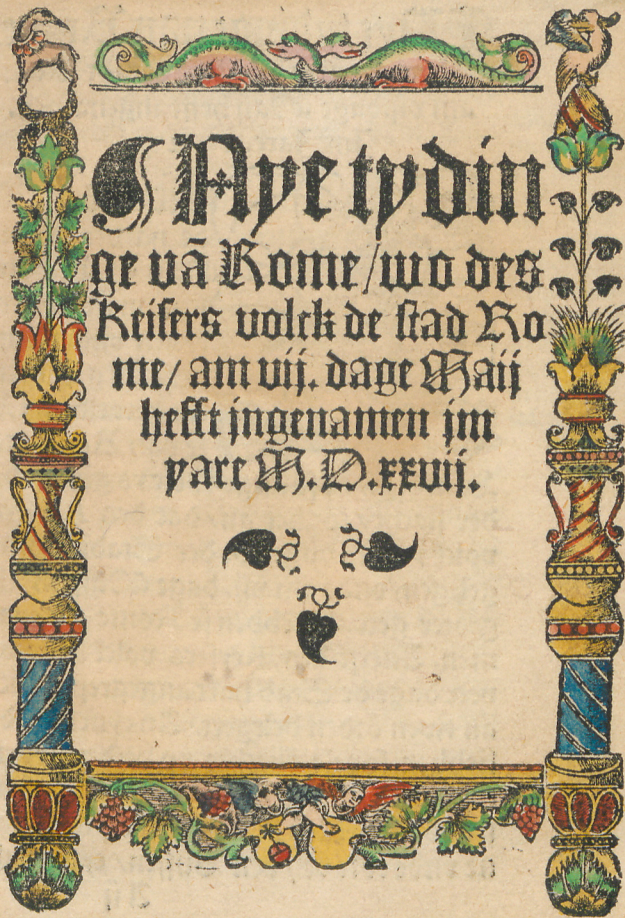 ¶ Nye tydin
ge vã Rome/wo des
Keisers volck de stad Ro
me/ am vij. dage Maij
hefft jngenamen jm
yare M.D.xxvij.